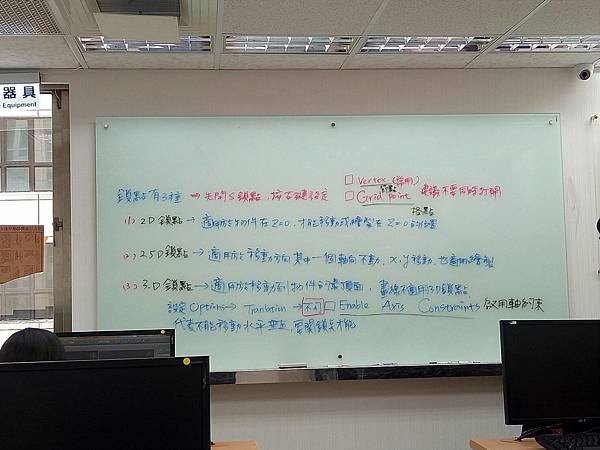 器具
Equipment
鎖點有3種 → 先開S鎖點,按右鍵設定
□ Vertex (常用)
□ Grid Point 建議不要同時打開
格點
(1) 2D鎖點 → 適用於物件在Z=0,才能移動或繪製在Z=0的位置
(2) 2.5D鎖點 → 適用於移動方向其中一個軸向不動,x,y移動,也適用繪製
(3) 3D鎖點 → 適用於移動到物件的邊頂面,畫線不適用3D鎖點
設定Options → Tranlation → 不勾 □ Enable Axis Constraints 啟用軸約束
代表不能移動水平垂直,要開鎖點才能